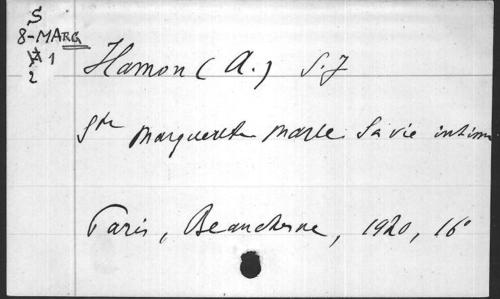 S
8-MARG
1
2
Hamon (A.) S.J
Ste Marguerite Marie. Sa vie intime
Paris, Beauchesne, 1920, 16°